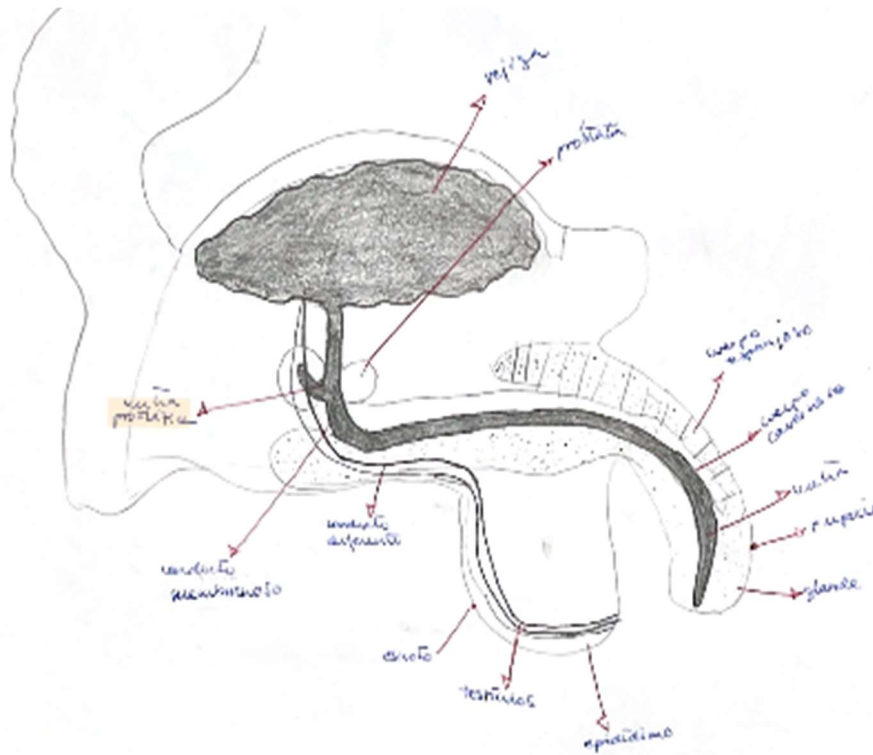 vejiga
prostata
cuerpo
esponjoso
cuerpo
cavernoso
uretra
prepucio
glande
uretra
conducto
deferente
conducto
membranoso
escroto
testiculos
epididimo